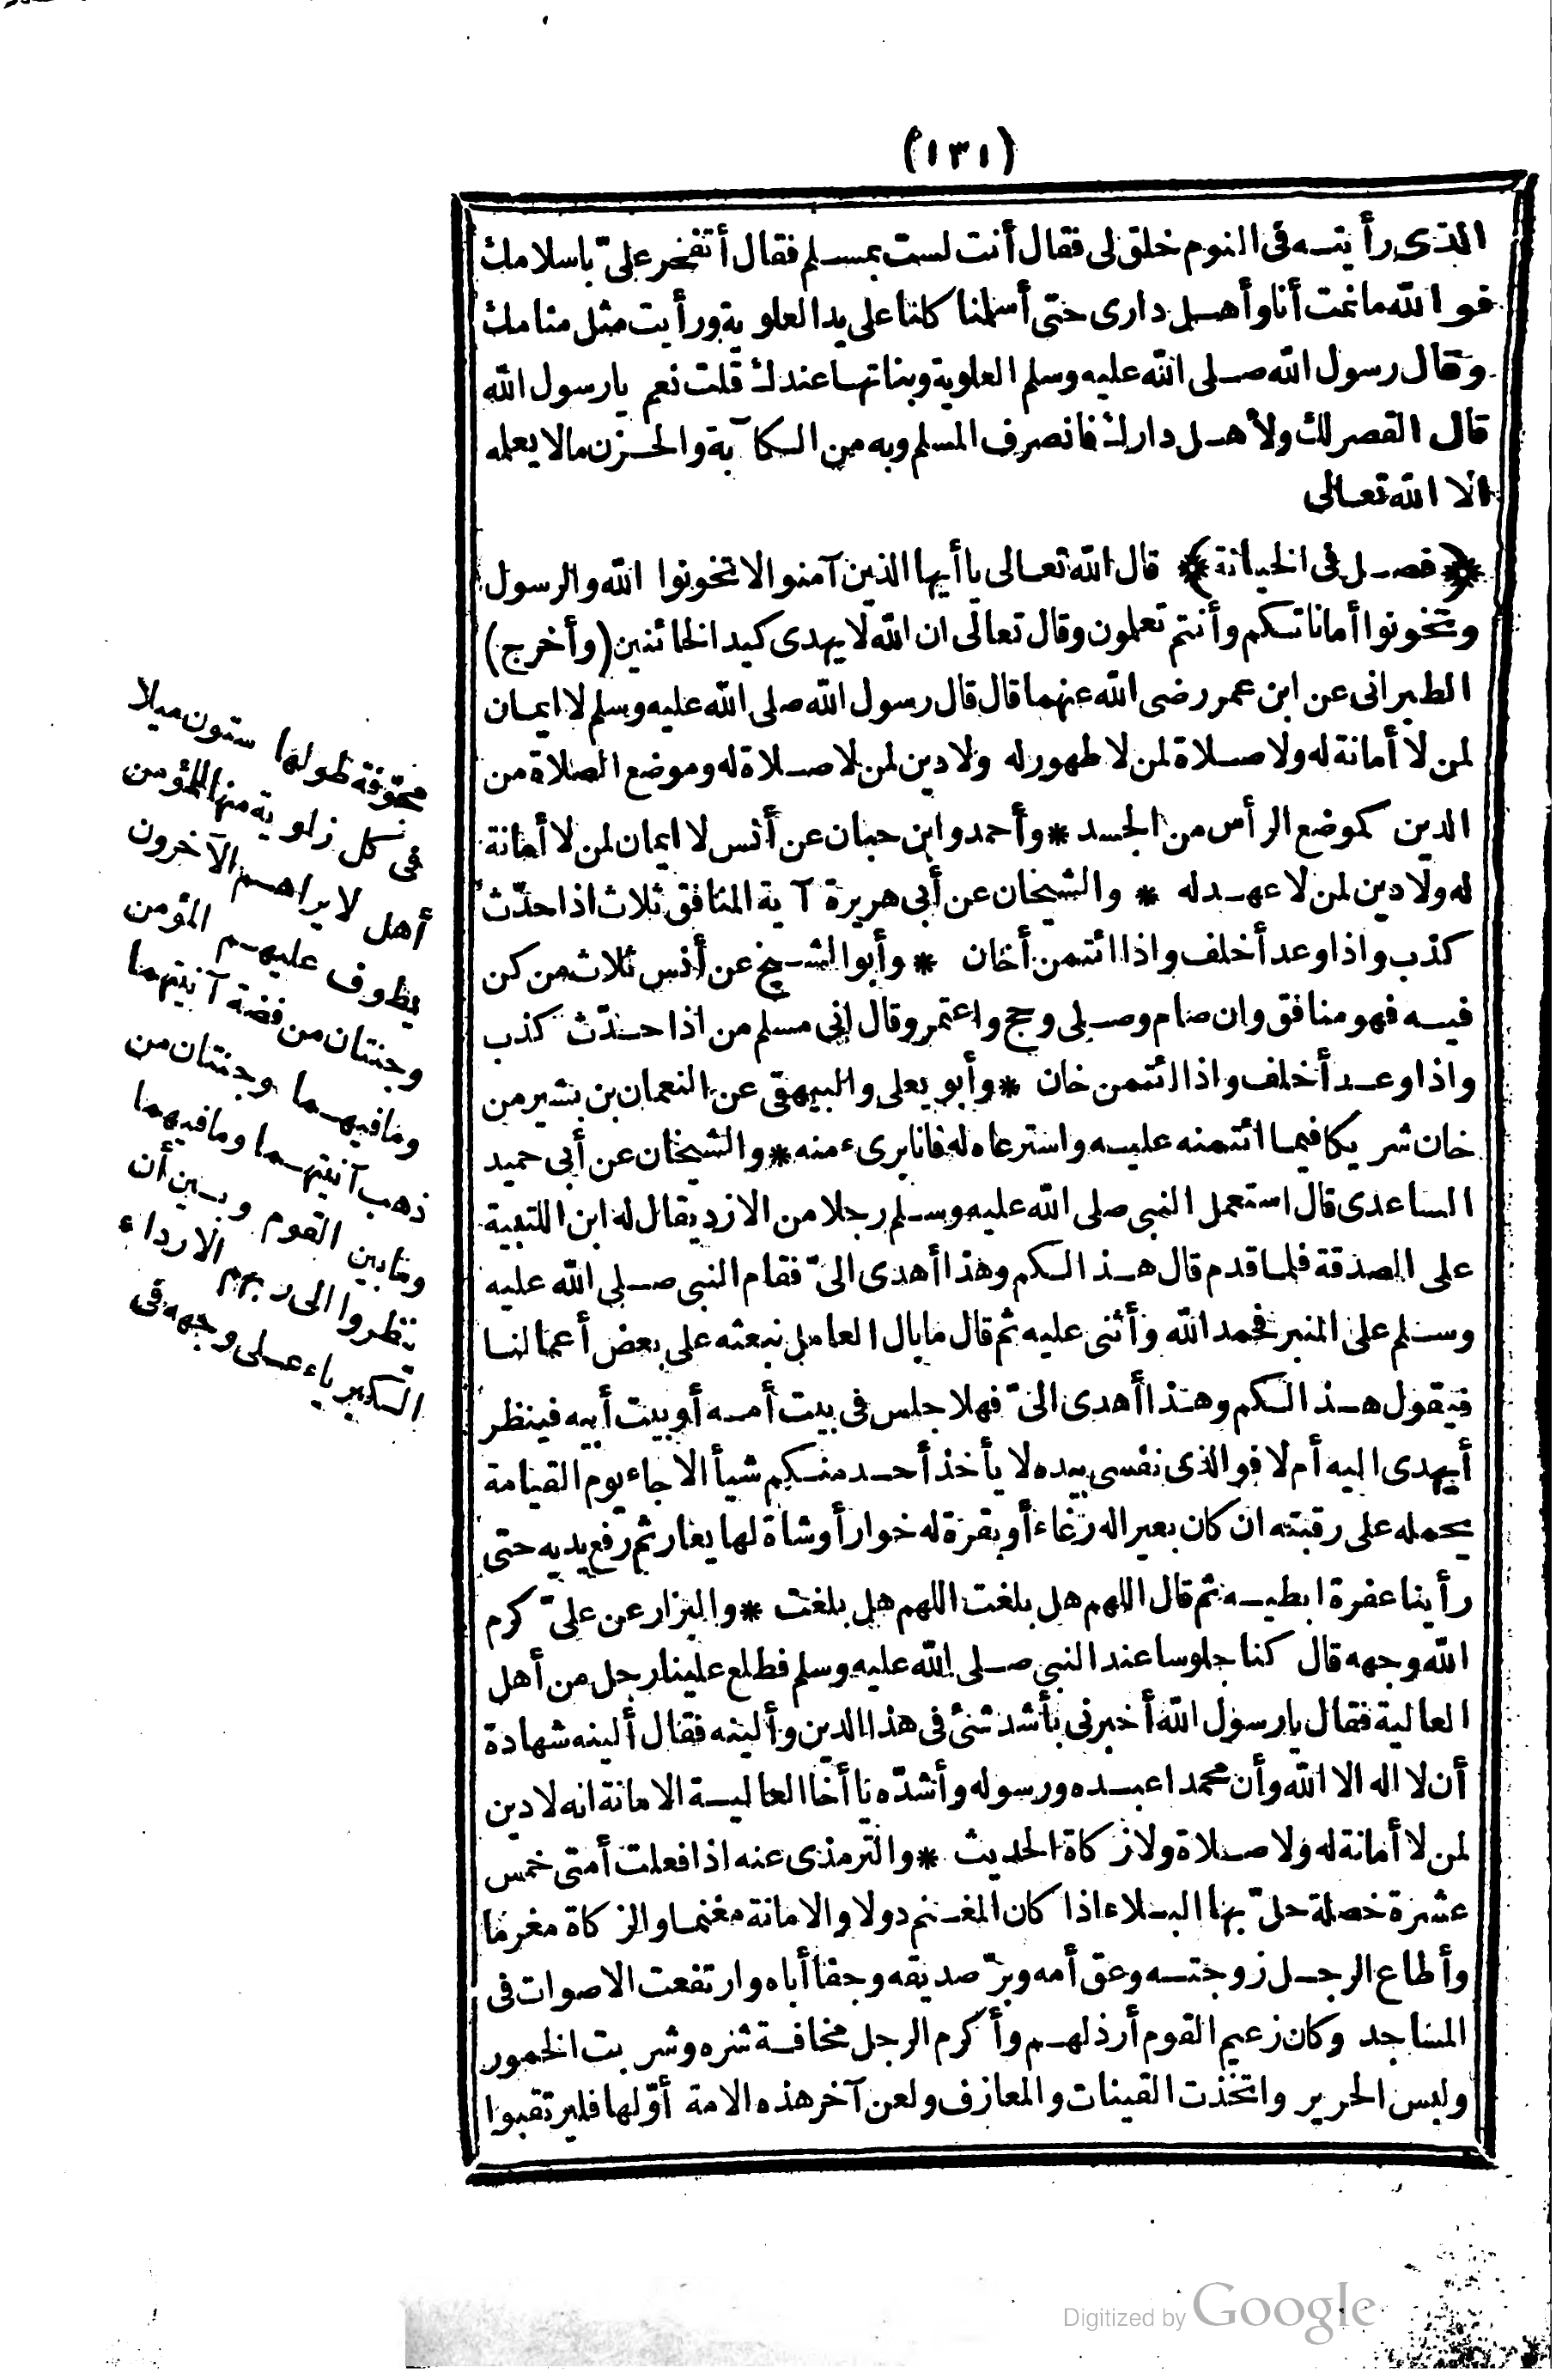 (١٣١)
الذى رأيته فى النوم خلق لى فقال أنت لست بمسلم فقال أتفخر علىّ باسلامك
فو الله ما نمت أنا وأهل دارى حتى أسلمنا كلنا على يد العلوية ورأيت مثل منامك
وقال رسول الله صلى الله عليه وسلم العلوية وبناتها عندك قلت نعم يا رسول الله
قال القصر لك ولأهل دارك فانصرف المسلم وبه من الكآبة والحزن ما لا يعلمه
الا الله تعالى
﴿فصل فى الخيانة﴾ قال الله تعالى يا أيها الذين آمنوا لا تخونوا الله والرسول
وتخونوا أماناتكم وأنتم تعلمون وقال تعالى ان الله لا يهدى كيد الخائنين (وأخرج)
الطبرانى عن ابن عمر رضى الله عنهما قال قال رسول الله صلى الله عليه وسلم لا ايمان
لمن لا أمانة له ولا صلاة لمن لا طهور له ولا دين لمن لا صلاة له وموضع الصلاة من
الدين كموضع الرأس من الجسد * وأحمد وابن حبان عن أنس لا ايمان لمن لا أمانة
له ولا دين لمن لا عهد له * والشيخان عن أبى هريرة آية المنافق ثلاث اذا حدّث
كذب واذا وعد أخلف واذا ائتمن أخان * وأبو الشيخ عن أنس ثلاث من كن
فيه فهو منافق وان صام وصلى وحج واعتمر وقال انى مسلم من اذا حدّث كذب
واذا وعد أخلف واذا ائتمن خان * وأبو يعلى والبيهقى عن النعمان بن بشير من
خان شريكا فيما ائتمنه عليه واسترعاه له فانا برىء منه * والشيخان عن أبى حميد
الساعدى قال استعمل النبى صلى الله عليه وسلم رجلا من الازد يقال له ابن اللتبية
على الصدقة فلما قدم قال هذا لكم وهذا أهدى الىّ فقام النبى صلى الله عليه
وسلم على المنبر فحمد الله وأثنى عليه ثم قال ما بال العامل نبعثه على بعض أعمالنا
فيقول هذا لكم وهذا أهدى الىّ فهلا جلس فى بيت أمه أو بيت أبيه فينظر
أيهدى اليه أم لا فو الذى نفسى بيده لا يأخذ أحد منكم شيأ الا جاء يوم القيامة
يحمله على رقبته ان كان بعيرا له رغاء أو بقرة له خوار أو شاة لها يعار ثم رفع يديه حتى
رأينا عفرة ابطيه ثم قال اللهم هل بلغت اللهم هل بلغت * والبزار عن علىّ كرم
الله وجهه قال كنا جلوسا عند النبى صلى الله عليه وسلم فطلع علينا رجل من أهل
العالية فقال يا رسول الله أخبرنى بأشد شئ فى هذا الدين وألينه فقال ألينه شهادة
أن لا اله الا الله وأن محمدا عبده ورسوله وأشدّه يا أخا العالية الامانة انه لا دين
لمن لا أمانة له ولا صلاة ولا زكاة الحديث * والترمذى عنه اذا فعلت أمتى خمس
عشرة خصلة حلّ بها البلاء اذا كان المغنم دولا والامانة مغنما والزكاة مغرما
وأطاع الرجل زوجته وعق أمه وبرّ صديقه وجفا أباه وارتفعت الاصوات فى
المساجد وكان زعيم القوم أرذلهم وأكرم الرجل مخافة شره وشربت الخمور
ولبس الحرير واتخذت القينات والمعازف ولعن آخر هذه الامة أوّلها فليرتقبوا
مجوّفة طولها ستون ميلا
فى كل زاوية منها للمؤمن
أهل لا يراهم الآخرون
يطوف عليهم المؤمن
وجنتان من فضة آنيتهما
وما فيهما وجنتان من
ذهب آنيتهما وما فيهما
وما بين القوم وبين أن
ينظروا الى ربهم الا رداء
الكبرياء على وجهه فى
Digitized by Google